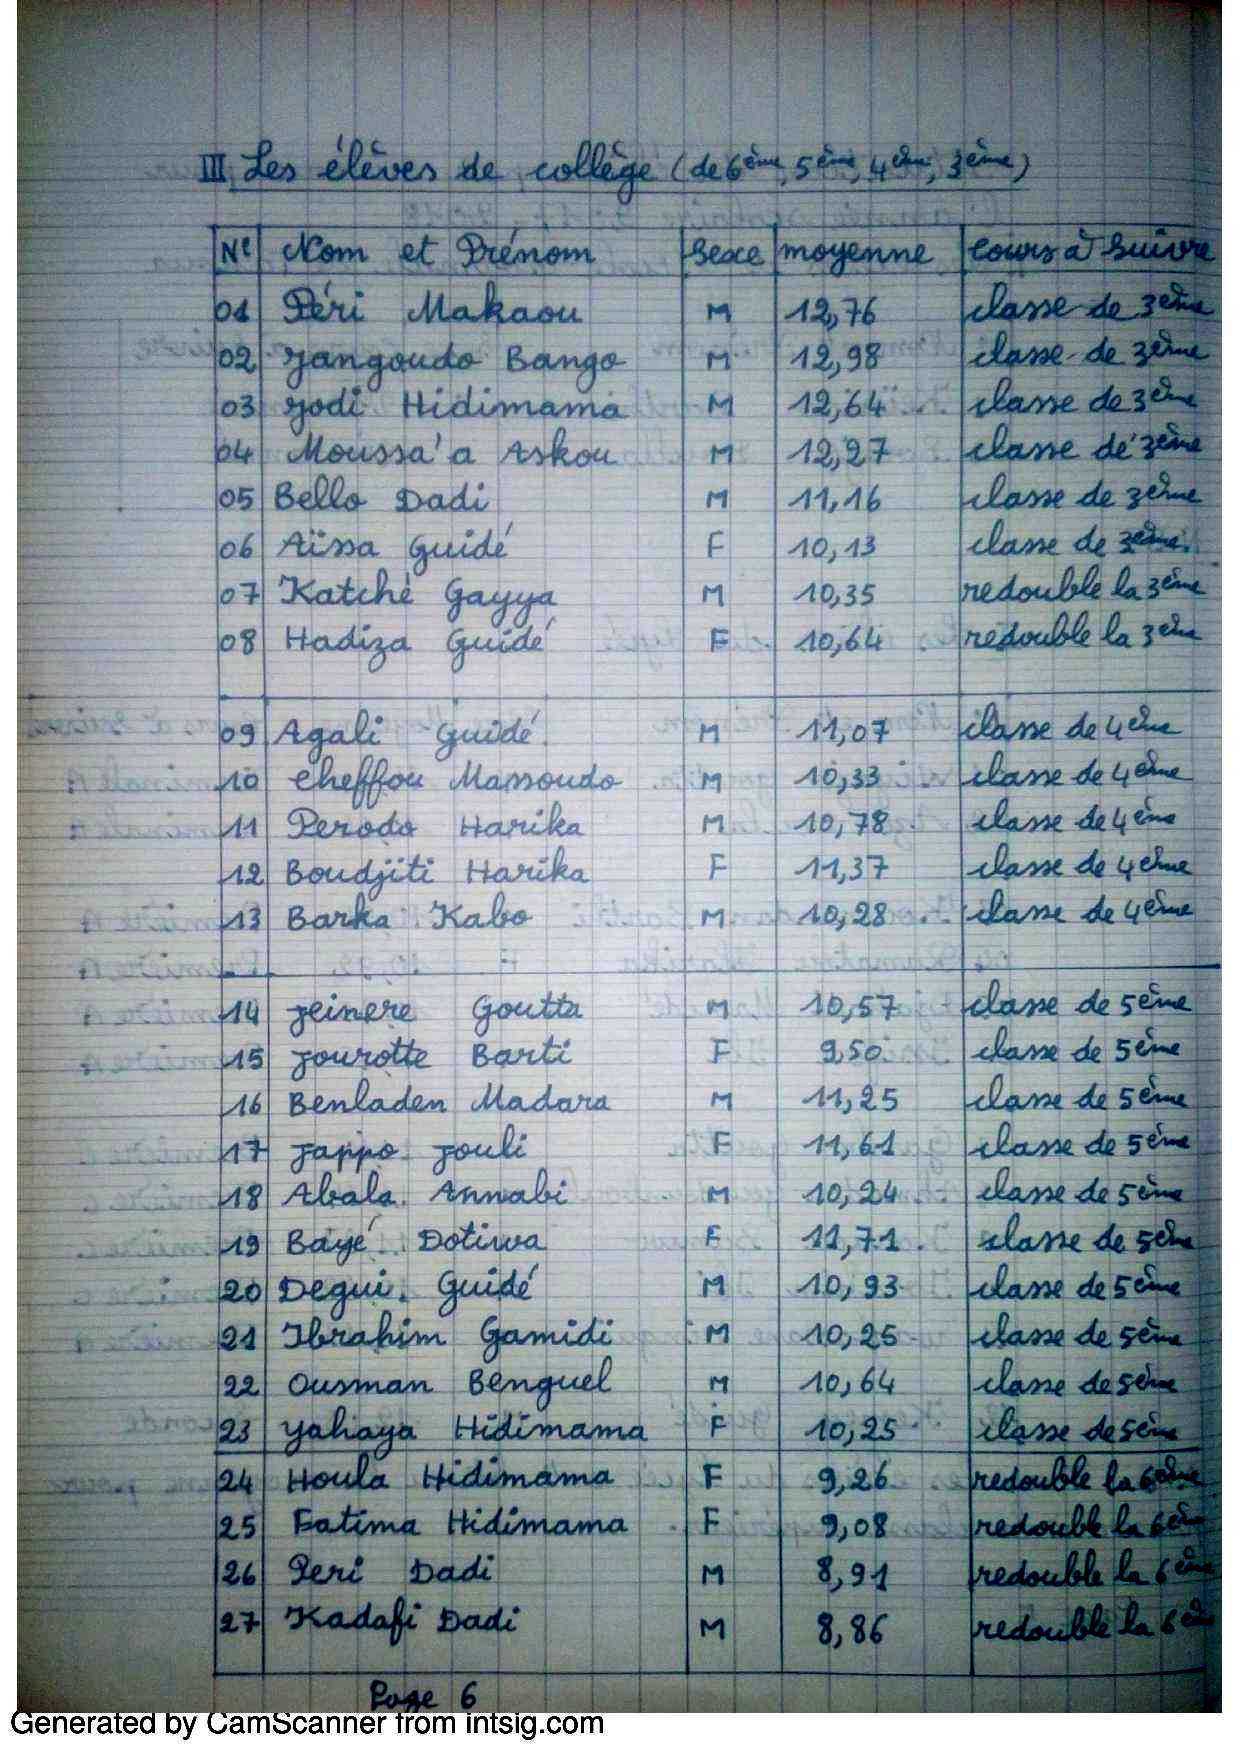 III Les élèves de collège (de 6ème, 5ème, 4ème, 3ème)
N° Nom et Prénom Sexe moyenne cours à suivre
01 Péri Makaou M 12,76 classe de 3ème
02 Yangoudo Bango M 12,98 classe de 3ème
03 Yodi Hidimama M 12,64 classe de 3ème
04 Moussa'a Askou M 12,27 classe de 3ème
05 Bello Dadi M 11,16 classe de 3ème
06 Aïssa Guidé F 10,13 classe de 3ème
07 Katché Gayya M 10,35 redouble la 3ème
08 Hadiza Guidé F 10,64 redouble la 3ème
09 Agali Guidé M 11,07 classe de 4ème
10 Cheffou Massoudo M 10,33 classe de 4ème
11 Perodo Harika M 10,78 classe de 4ème
12 Boudjiti Harika F 11,37 classe de 4ème
13 Barka Kabo M 10,28 classe de 4ème
14 Jeinere Goutta M 10,57 classe de 5ème
15 Jourotte Barti F 9,50 classe de 5ème
16 Benladen Madara M 11,25 classe de 5ème
17 Jappo Jouli F 11,61 classe de 5ème
18 Abala Annabi M 10,24 classe de 5ème
19 Bayé Dotiwa F 11,71 classe de 5ème
20 Degui Guidé M 10,93 classe de 5ème
21 Ibrahim Gamidi M 10,25 classe de 5ème
22 Ousman Benguel M 10,64 classe de 5ème
23 Yahaya Hidimama F 10,25 classe de 5ème
24 Houla Hidimama F 9,26 redouble la 6ème
25 Fatima Hidimama F 9,08 redouble la 6ème
26 Peri Dadi M 8,91 redouble la 6ème
27 Kadafi Dadi M 8,86 redouble la 6ème
Page 6
Generated by CamScanner from intsig.com